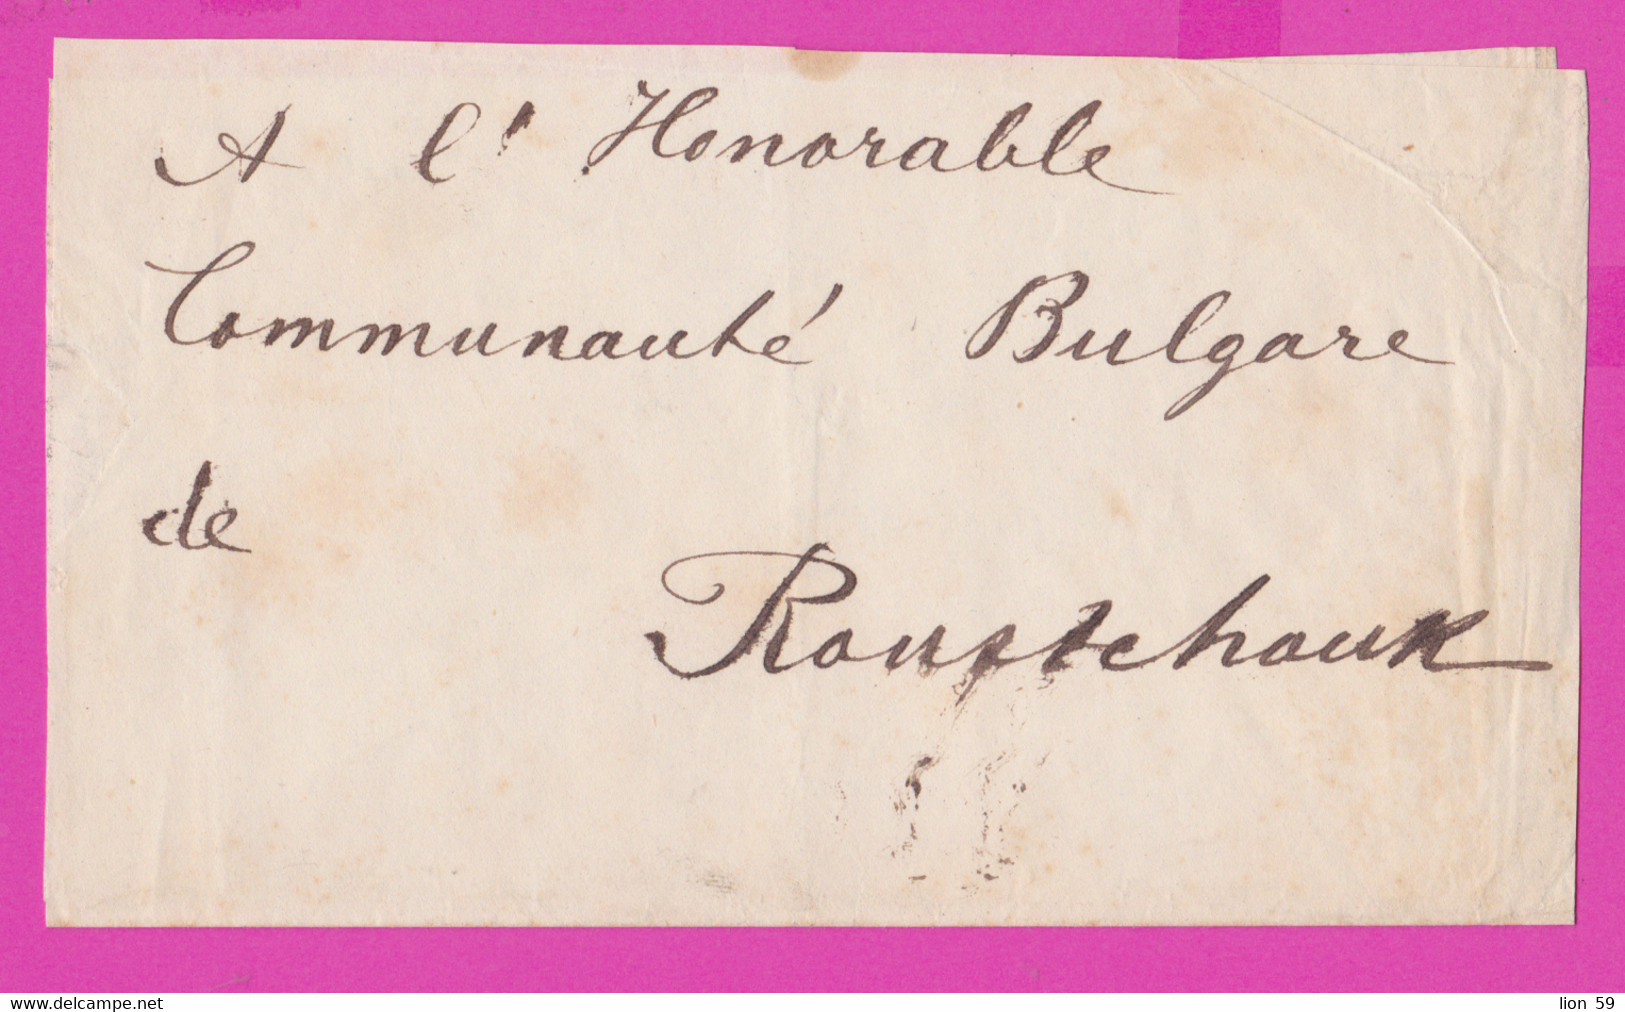 A l' Honorable
Communauté Bulgare
de
Roustchouk
www.delcampe.net
lion 59